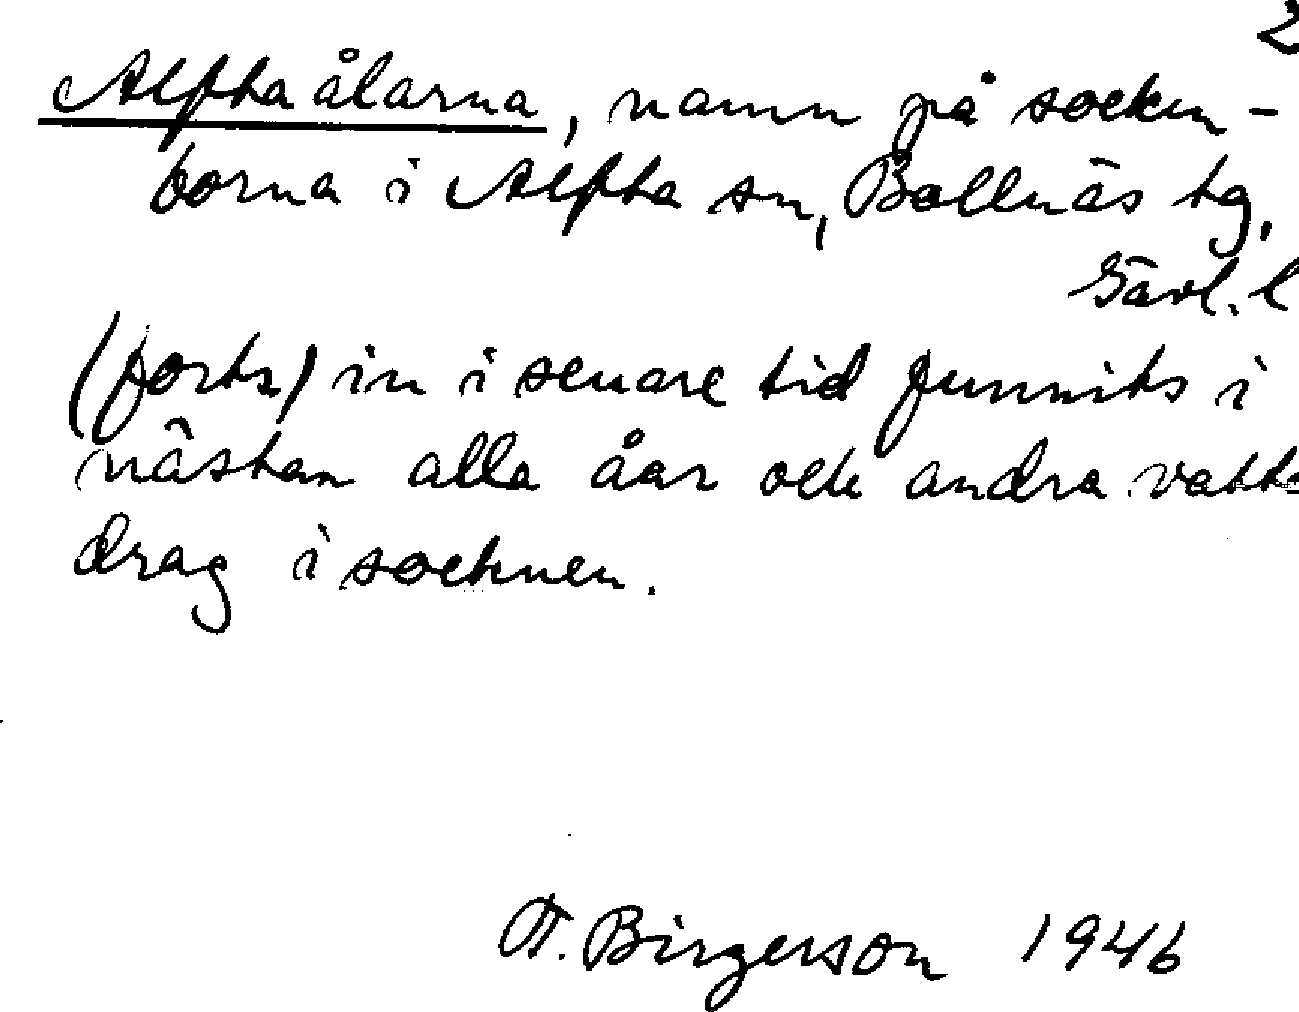 2
Alfta ålarna, namn på socken-
borna i Alfta sn, Bollnäs tg,
Gävl. l
(forts) in i senare tid funnits i
nästan alla åar och andra vatte
drag i socknen.
A. Birgerson 1946